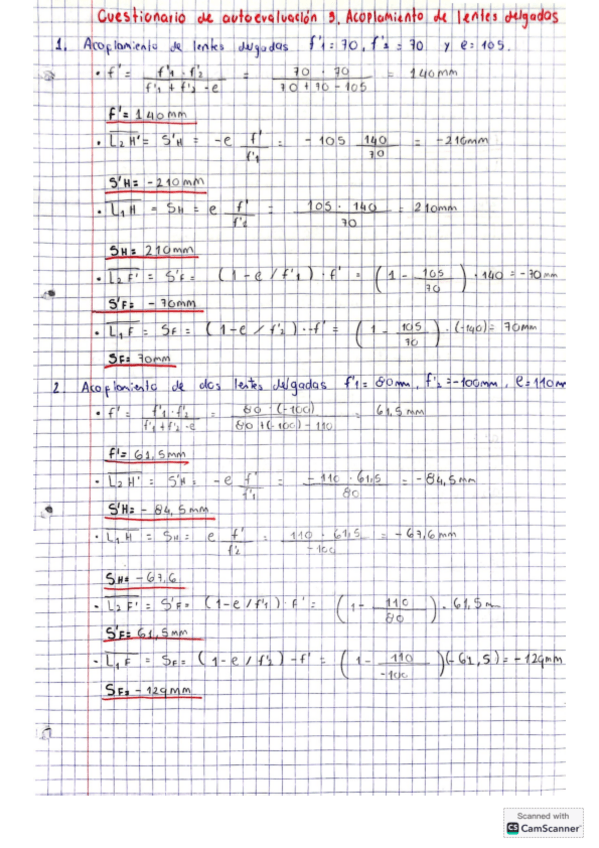 Cuestionario de autoevaluación 9. Acoplamiento de lentes delgadas
1. Acoplamiento de lentes delgadas f'1 = 70, f'2 = 70 y e = 105.
• f' = f'1 · f'2 / f'1 + f'2 - e = 70 · 70 / 70 + 70 - 105 = 140mm
f' = 140mm
• L2 H' = S'H = -e f' / f'1 = - 105 140 / 70 = -210mm
S'H = -210mm
• L1 H = SH = e f' / f'2 = 105 · 140 / 70 = 210mm
SH = 210mm
• L2 F' = S'F = (1 - e / f'1) · f' = (1 - 105 / 70) · 140 = -70mm
S'F = -70mm
• L1 F = SF = (1 - e / f'2) · -f' = (1 - 105 / 70) · (-140) = 70mm
SF = 70mm
2. Acoplamiento de dos lentes delgadas f'1 = 80mm, f'2 = -100mm, e = 110m
• f' = f'1 · f'2 / f'1 + f'2 - e = 80 · (-100) / 80 + (-100) - 110 = 61,5mm
f' = 61,5mm
• L2 H' = S'H = -e f' / f'1 = -110 · 61,5 / 80 = -84,5mm
S'H = -84,5mm
• L1 H = SH = e f' / f'2 = 110 · 61,5 / -100 = -67,6mm
SH = -67,6
• L2 F' = S'F = (1 - e / f'1) · F' = (1 - 110 / 80) · 61,5m
S'F = 61,5mm
• L1 F = SF = (1 - e / f'2) - f' = (1 - 110 / -100) (-61,5) = -129mm
SF = -129mm
Scanned with
CS CamScanner